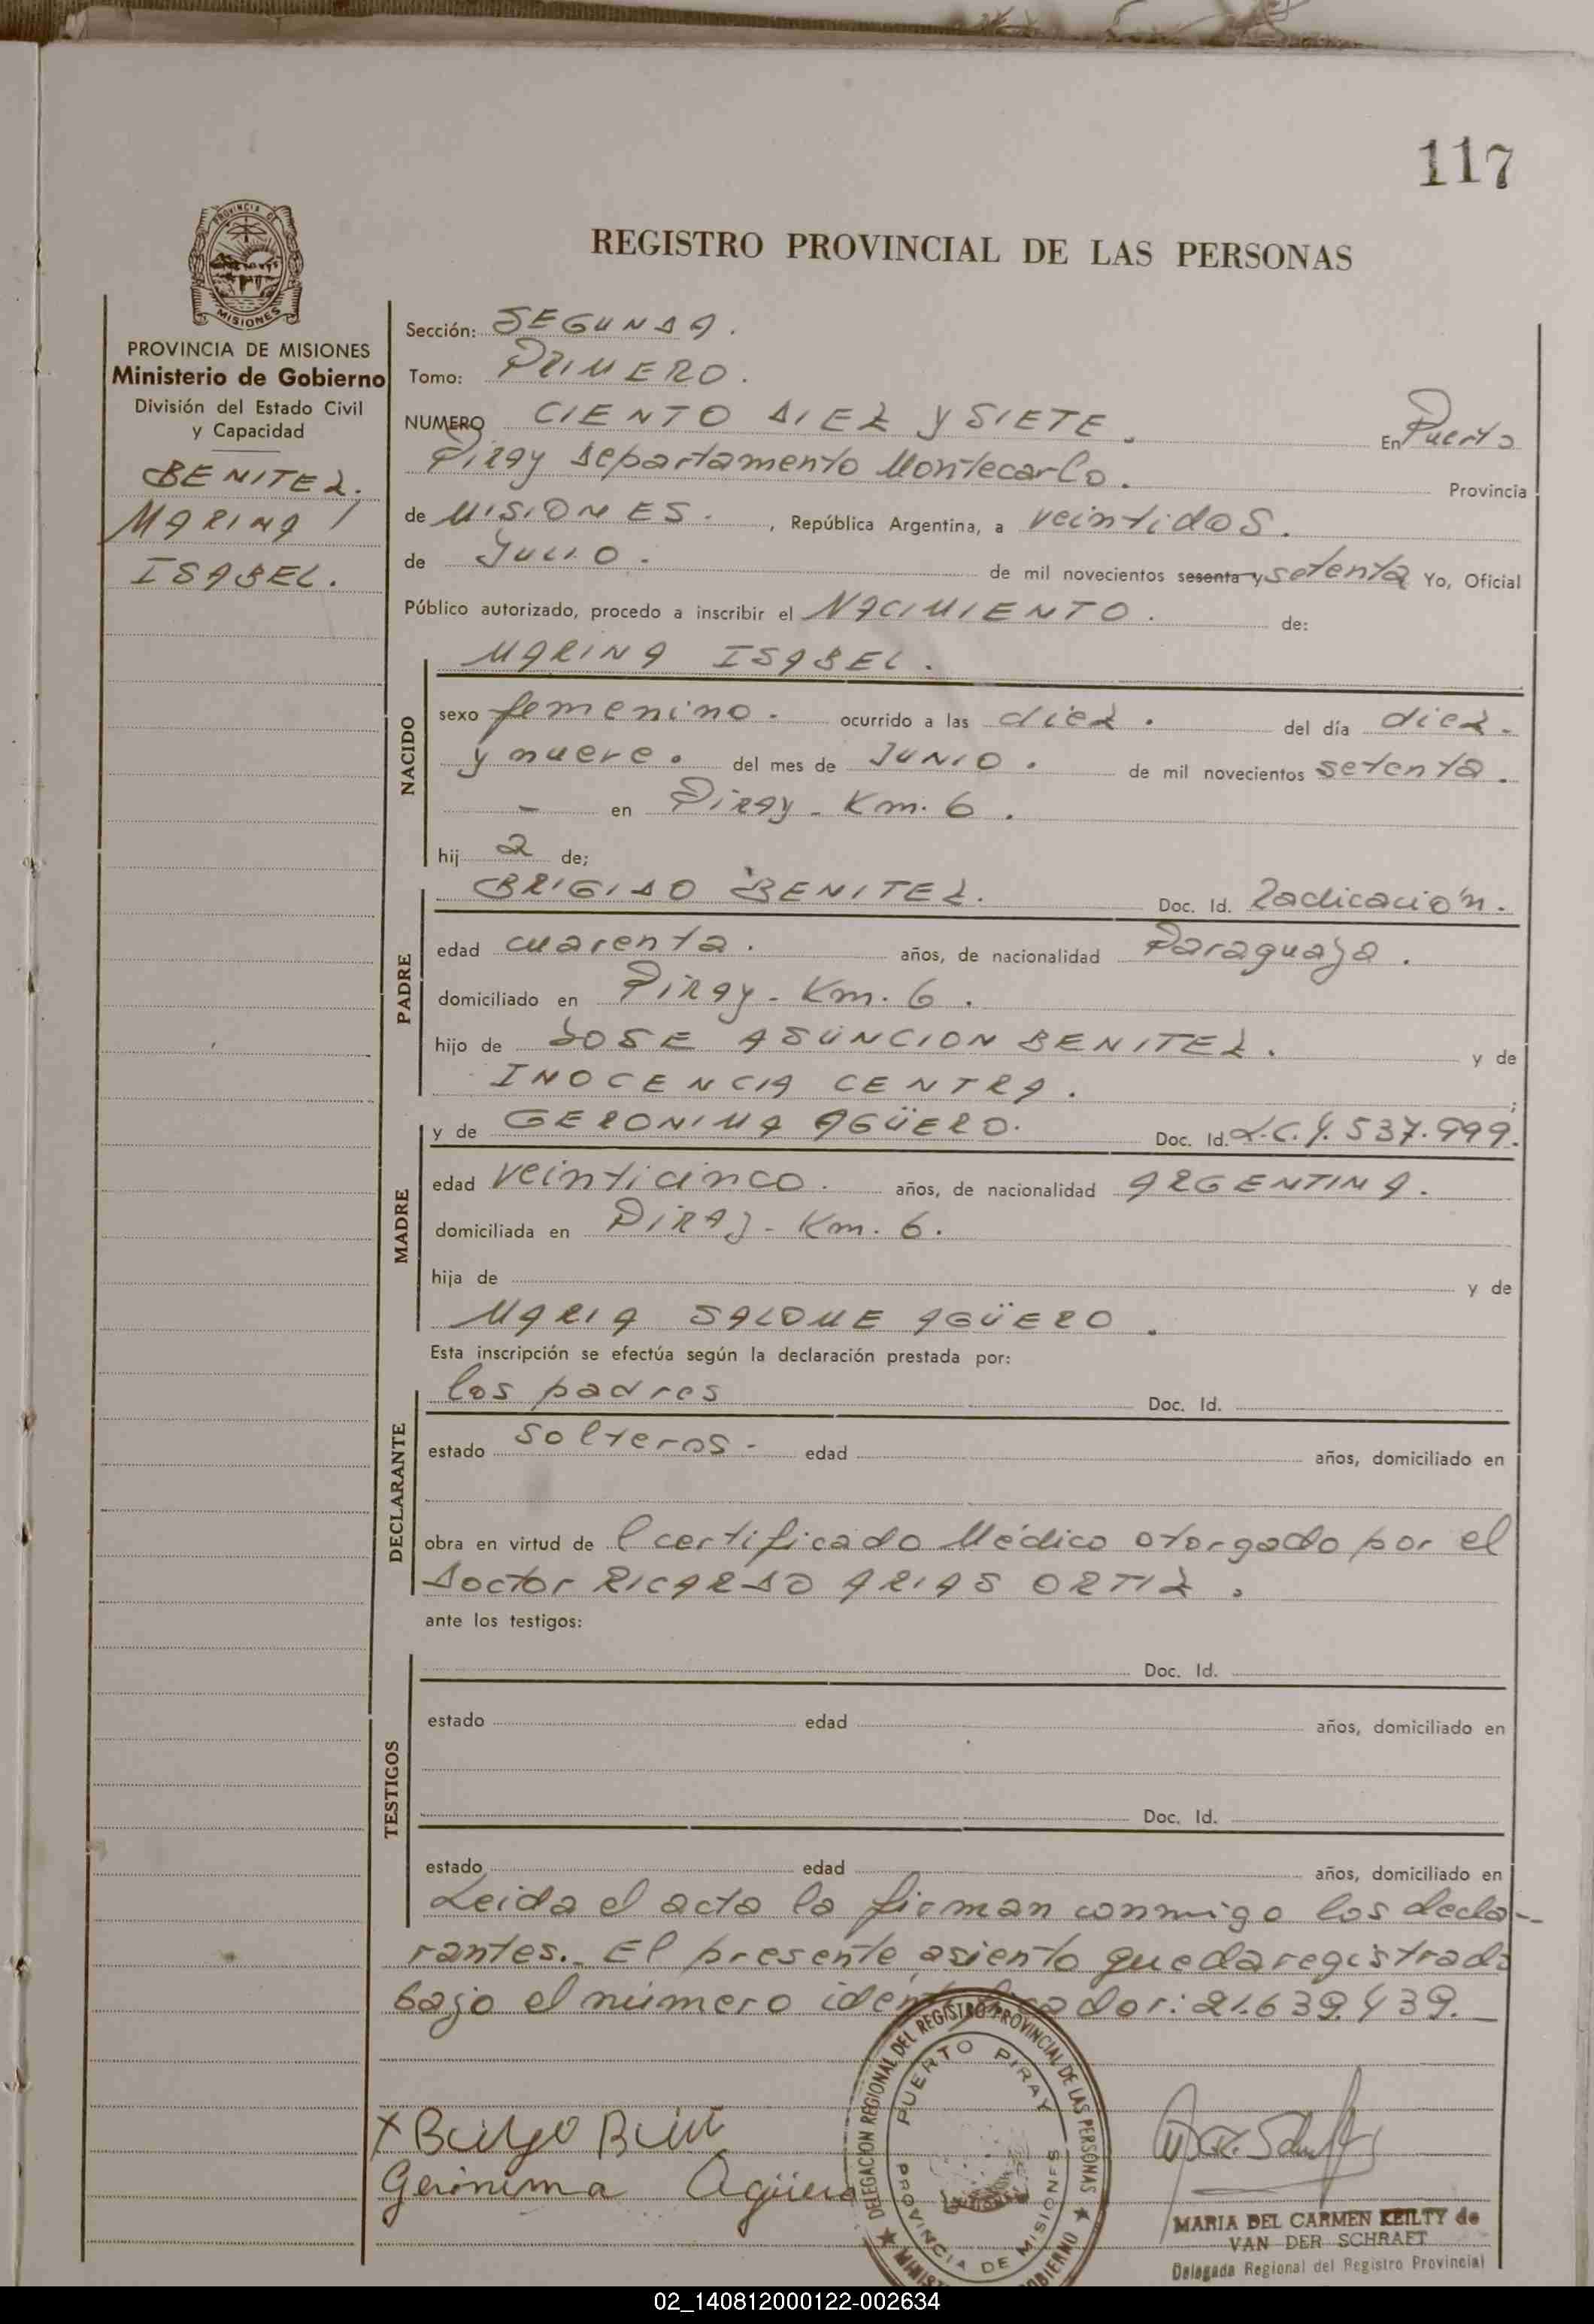 117
PROVINCIA DE
MISIONES
REGISTRO PROVINCIAL DE LAS PERSONAS
PROVINCIA DE MISIONES
Ministerio de Gobierno
División del Estado Civil
y Capacidad
BENITEZ.
MARINA
ISABEL.
Sección: SEGUNDA.
Tomo: PRIMERO.
NUMERO CIENTO DIEZ y SIETE. En Puerto
Piray Departamento Montecarlo. Provincia
de MISIONES. , República Argentina, a veintidos.
de JULIO. de mil novecientos sesenta y setenta Yo, Oficial
Público autorizado, procedo a inscribir el NACIMIENTO. de:
MARINA ISABEL.
NACIDO
sexo femenino. ocurrido a las diez. del día diez.
y nueve. del mes de JUNIO. de mil novecientos setenta.
- en Piray - Km. 6.
hij a de;
BRIGIDO BENITEZ. Doc. Id. Radicación.
PADRE
edad cuarenta. años, de nacionalidad Paraguaya.
domiciliado en Piray - Km. 6.
hijo de JOSE ASUNCION BENITEZ. y de
INOCENCIA CENTRA. ;
y de GERONIMA AGÜERO. Doc. Id. L.C.Y. 537.999.
MADRE
edad veinticinco. años, de nacionalidad ARGENTINA.
domiciliada en PIRAY - Km. 6.
hija de y de
MARIA SALOME AGÜERO.
Esta inscripción se efectúa según la declaración prestada por:
los padres Doc. Id.
DECLARANTE
estado solteros. edad años, domiciliado en
obra en virtud de l certificado Médico otorgado por el
Doctor RICARDO ARIAS ORTIZ.
ante los testigos:
Doc. Id.
TESTIGOS
estado edad años, domiciliado en
Doc. Id.
estado edad años, domiciliado en
Leida el acta la firman conmigo los decla-
rantes. El presente asiento queda registrado
bajo el número identificador: 21.639.439.
DELEGACION REGIONAL DEL REGISTRO PROVINCIAL DE LAS PERSONAS
PUERTO PIRAY
PROVINCIA DE MISIONES
Gerónima Agüero
MARIA DEL CARMEN KEILTY de
VAN DER SCHRAFT
Delegada Regional del Registro Provincial
02_140812000122-002634